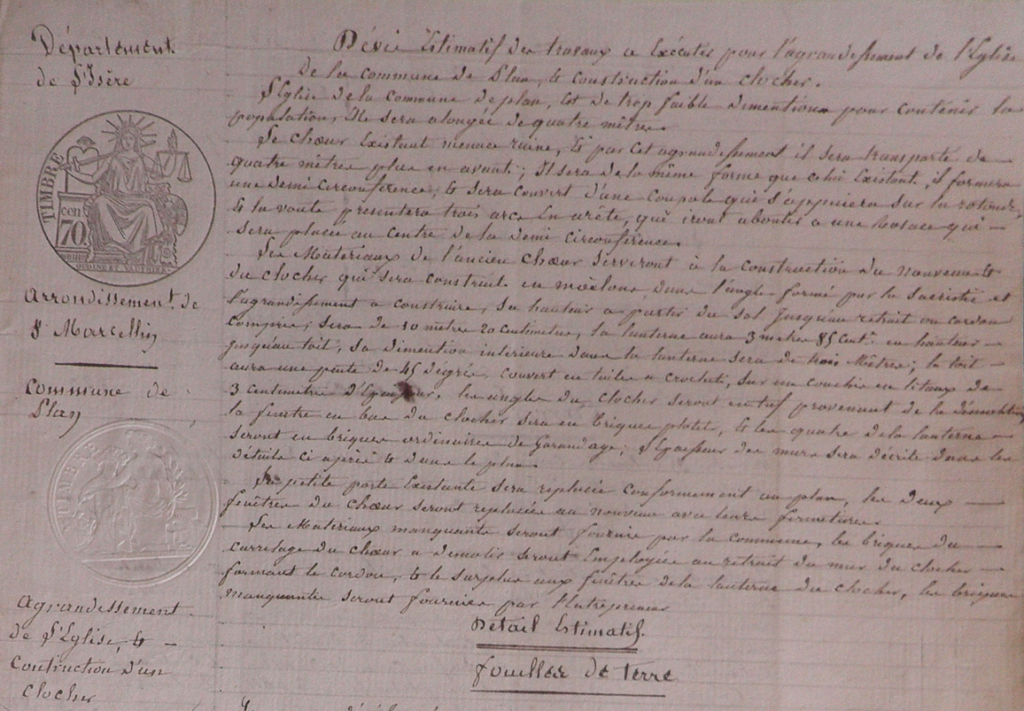 Département
de l'Isère
TIMBRE
cen
70.
Arrondissement de
St Marcellin
Commune de
Plan
Agrandissement
de l'Eglise, &
Contruction d'un
Clocher
Dévis Estimatif des travaux a Exécuter pour l'agrandissement de l'Eglise
de la commune de Plan, & construction d'un clocher.
L'Eglise de la Commune de plan, Est de trop faible dimentions pour contenir la
population, Elle sera alongée de quatre mètres.
Le Chœur Existant menace ruine, & par cet agrandissement il sera transporté de
quatre mètres plus en avant; Il sera de la même forme que celui Existant, il formera
une demi circonférence, & sera couvert d'une Coupole qui s'appuiera sur la rotonde,
& la voute presentera trois arcs En arête, qui iront aboutir a une Rosace qui
sera placée au Centre de la demi circonférence.
Les Matériaux de l'ancien Chœur serviront à la construction du nouveau &
du clocher qui sera construit en moëlons, dans l'angle formé par la Sacristie et
l'agrandissement a construire, sa hauteur a partir du sol jusqu'au retrait ou cordon
compris, sera de 10 mètres 20 centimètres, la lanterne aura 3 mètres 85 Cent. en hauteur
jusqu'au toit, sa dimention intérieure dans la lanterne sera de trois Mètres; le toit
aura une pente de 45 dégrés, couvert en tuiles a crochets, sur un couchis en litaux de
3 centimètres d'Epaisseur, les angles du clocher seront en tuf provenant de la démolition
la fenêtre en bas du clocher sera en briques plates, & les quatre de la lanterne
seront en briques ordinaires de Garandage; L'Epaisseur des murs sera décrite dans les
détails ci après & dans le plan.
La petite porte Existante sera replacée conformement au plan, les deux
fenêtres du chœur seront replacées au nouveau avec leurs fermetures.
Les Matériaux manquants seront fournis par la commune, les briques du
carrelage du chœur a démolir seront Employées au retrait du mur du clocher
formant le cordon, & le surplus aux fenêtres de la lanterne du clocher, les briques
manquantes seront fournies par l'Entrepreneur
Détail Estimatif.
fouilles de terre